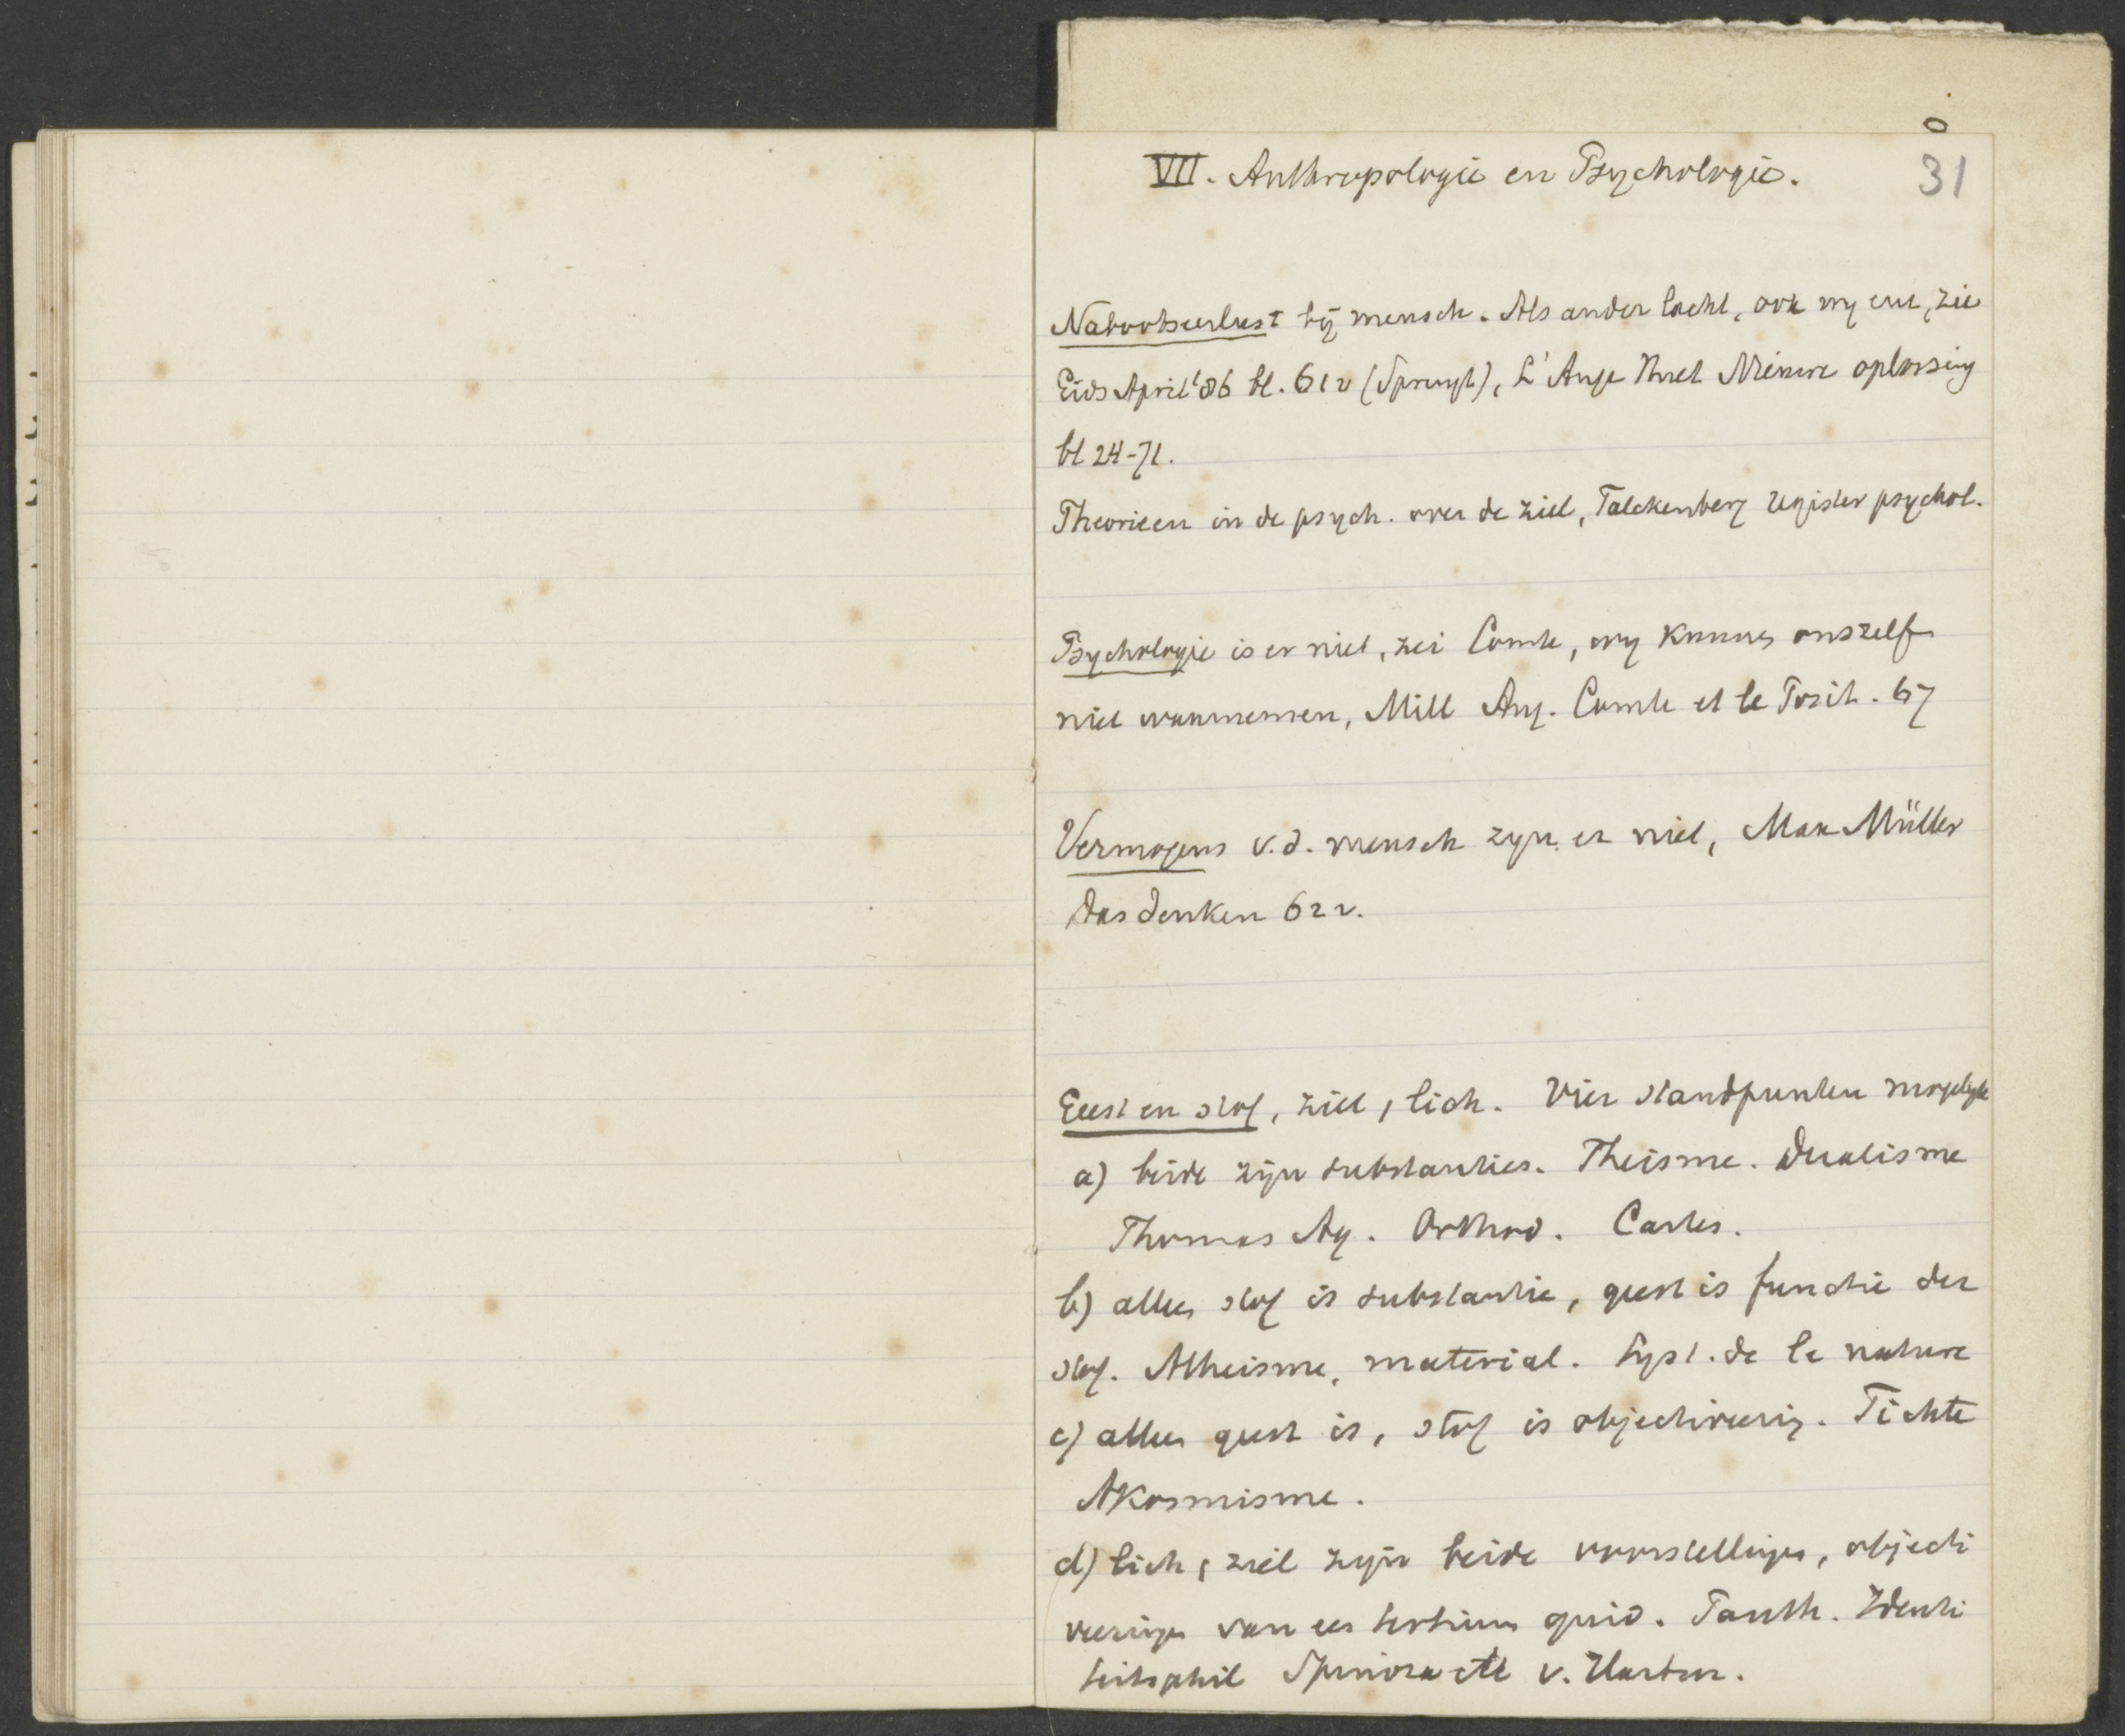 VII. Anthropologie en Psychologie.
31
Nabootseerlust bij mensch. Als ander lacht, ook wy enz, zie
Gids April '86 bl. 612 (Spruyt), L'Ange Huet Nieuwe oplossing
bl 24-71.
Theorieen in de psych. over de ziel, Falckenberg register psychol.
Psychologie is er niet, zei Comte, wy kunnen onszelf
niet waarnemen, Mill Aug. Comte et le Posit. 67
Vermogens v.d. mensch zyn er niet, Max Müller
Das denken 622.
Geest en stof, ziel, lich. Vier standpunten mogelyk
a) beide zijn substanties. Theisme. Dualisme
Thomas Aq. Orthod. Cartes.
b) alleen stof is substantie, geest is functie der
stof. Atheisme, material. Syst. de la nature
c) alleen geest is, stof is objectiveering. Fichte
Akosmisme.
d) lich, ziel zyn beide voorstellingen, objecti
veeringen van een tertium quid. Panth. Identi
teitsphil Spinoza etc v. Hartm.